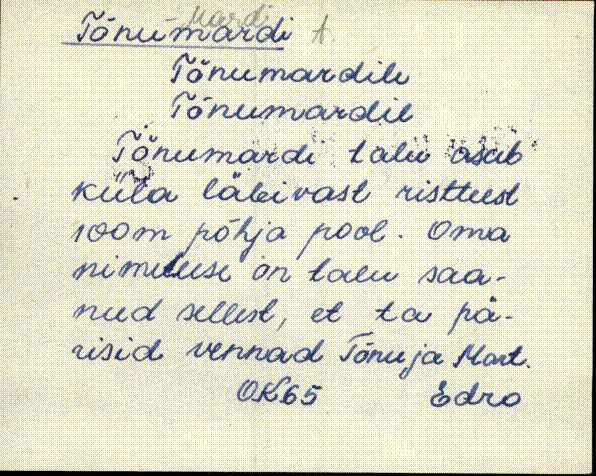 - Mardi
Tõnumardi A.
Tõnumardile
Tõnumardil
Tõnumardi talu asub
küla läbivast risttest
100m põhja pool. Oma
nimetuse on talu saa-
nud sellest, et ta pä-
risid vennad Tõnu ja Mart.
OK65 Edro